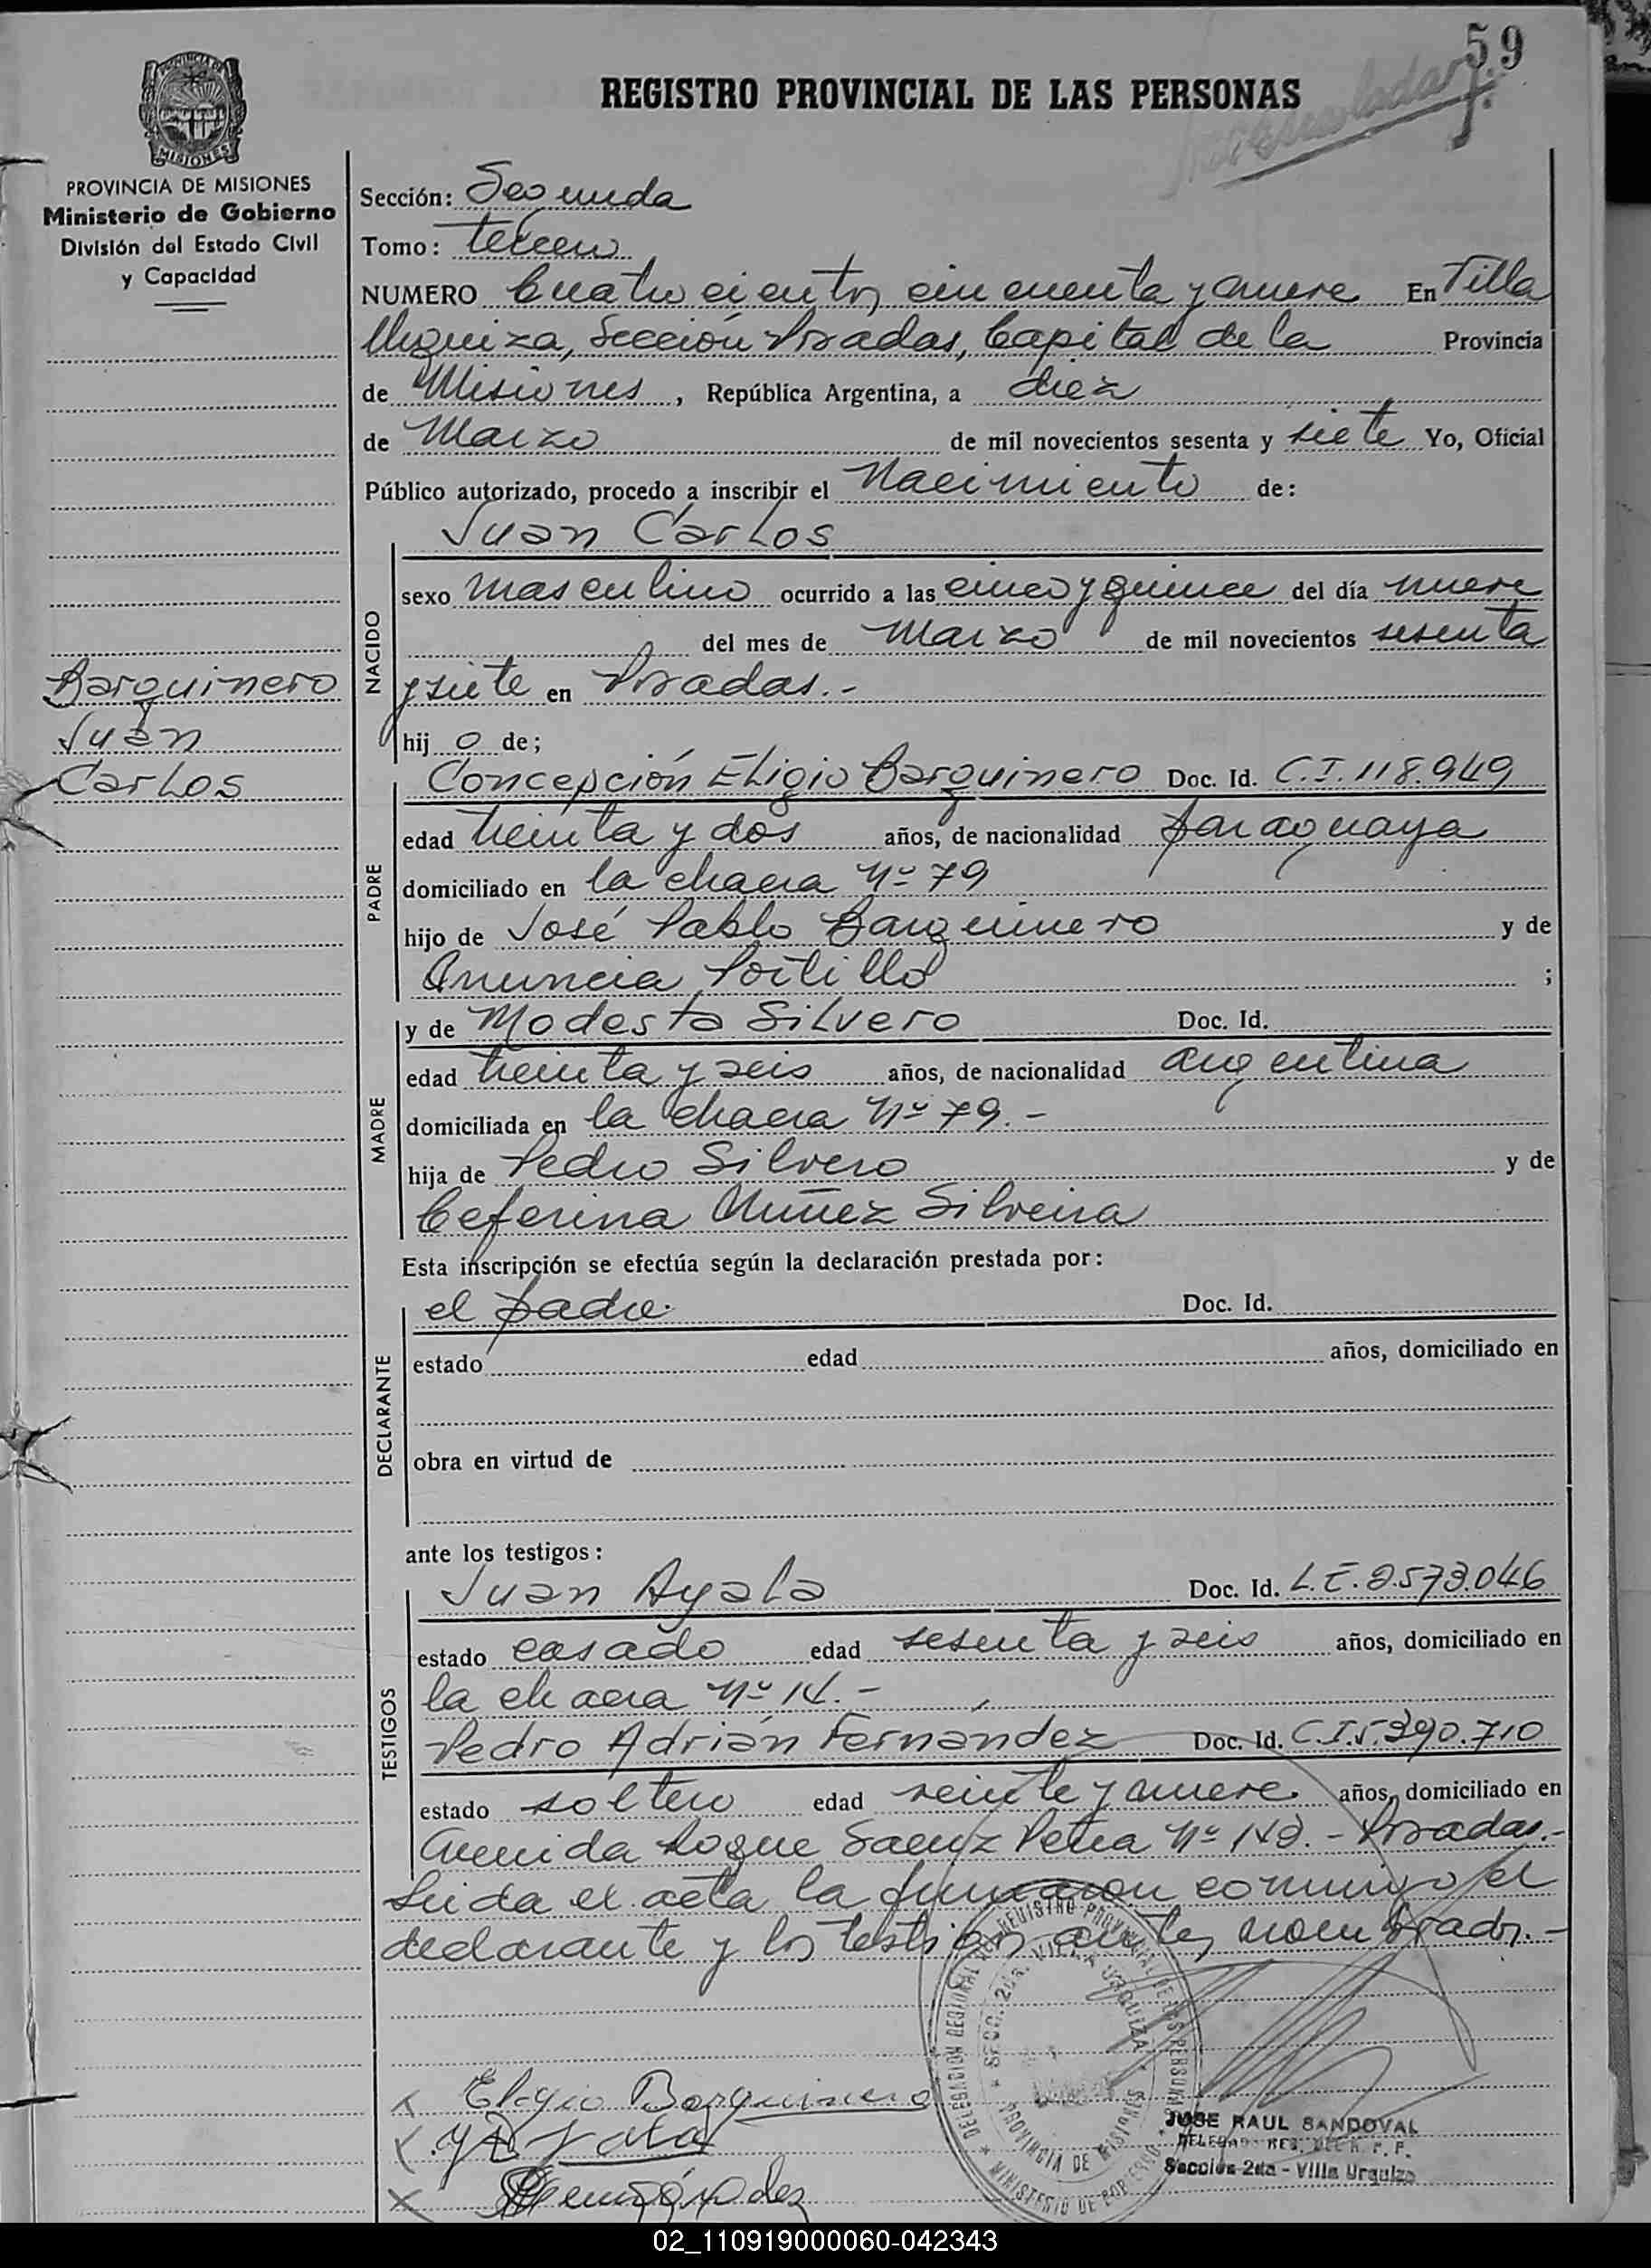 59
REGISTRO PROVINCIAL DE LAS PERSONAS
PROVINCIA DE MISIONES
Ministerio de Gobierno
División del Estado Civil
y Capacidad
Sección: Segunda
Tomo: tercero
NUMERO Cuatrocientos cincuenta y nueve En Villa
Urquiza, Sección Posadas, Capital de la Provincia
de Misiones, República Argentina, a diez
de Marzo de mil novecientos sesenta y siete Yo, Oficial
Público autorizado, procedo a inscribir el Nacimiento de:
Juan Carlos
NACIDO
sexo masculino ocurrido a las cinco y quince del día nueve
del mes de Marzo de mil novecientos sesenta
y siete en Posadas.-
Barquinero
Juan
Carlos
hijo de;
PADRE
Concepción Eligio Barquinero Doc. Id. C.I. 118.949
edad treinta y dos años, de nacionalidad paraguaya
domiciliado en la chacra Nº 79
hijo de José Pablo Barquinero y de
Anuncia Portillo ;
MADRE
y de Modesta Silvero Doc. Id.
edad treinta y seis años, de nacionalidad argentina
domiciliada en la chacra Nº 79.-
hija de Pedro Silvero y de
Ceferina Núñez Silveira
Esta inscripción se efectúa según la declaración prestada por:
DECLARANTE
el padre. Doc. Id.
estado edad años, domiciliado en
obra en virtud de
ante los testigos:
TESTIGOS
Juan Ayala Doc. Id. L.E. 2.573.046
estado casado edad sesenta y seis años, domiciliado en
la chacra Nº 14.-
Pedro Adrián Fernández Doc. Id. C.I. 5.390.710
estado soltero edad veinte y nueve años, domiciliado en
Avenida Roque Saenz Peña Nº 149.- Posadas.-
Leida el acta la firmaron conmigo el
declarante y los testigos antes nombrados.-
DELEGACION REGIONAL DEL REGISTRO PROVINCIAL DE LAS PERSONAS
SECC. 2da. VILLA URQUIZA
PROVINCIA DE MISIONES
MINISTERIO DE GOBIERNO
x Eligio Barquinero
x Ayala
x Fernández
JOSE RAUL SANDOVAL
DELEGADO REG. DEL R. P. P.
Sección 2da - Villa Urquiza
02_110919000060-042343